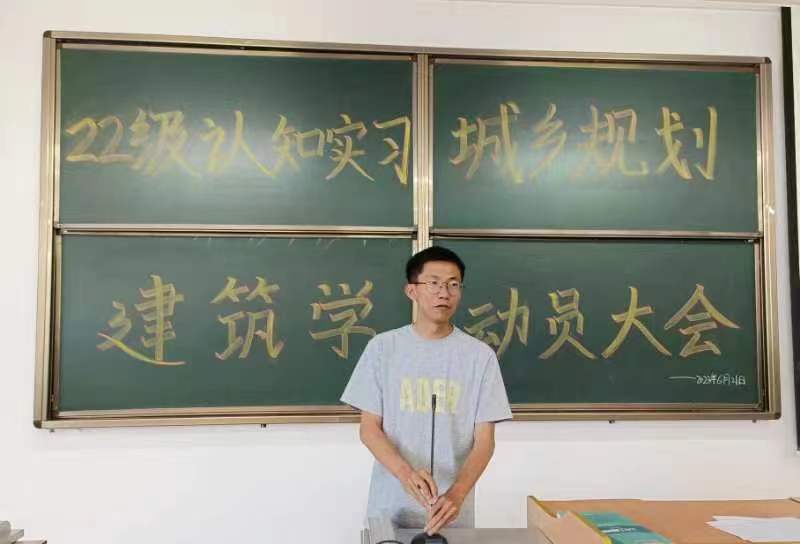 22级认知实习 城乡规划
建筑学 动员大会
——2023年6月21日
ADER